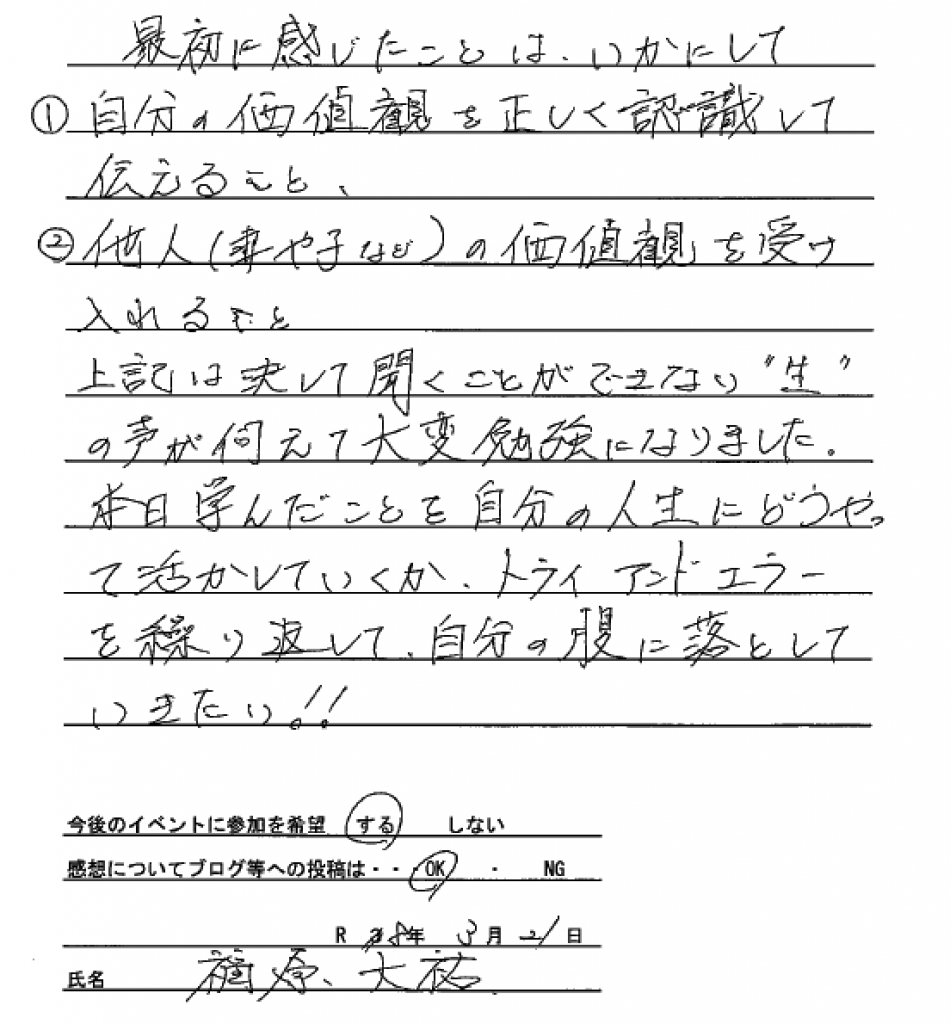 最初に感じたことは、いかにして
①自分の価値観を正しく認識して
伝えること、
②他人(妻や子など)の価値観を受け
入れること
上記は決して聞くことができない"生"
の声が伺えて大変勉強になりました。
本日学んだことを自分の人生にどうやっ
て活かしていくか、トライアンドエラー
を繰り返して、自分の腹に落として
いきたい!!
今後のイベントに参加を希望 する しない
感想についてブログ等への投稿は・・・OK ・ NG
R 8年 3月 21日
氏名 福原、大祐